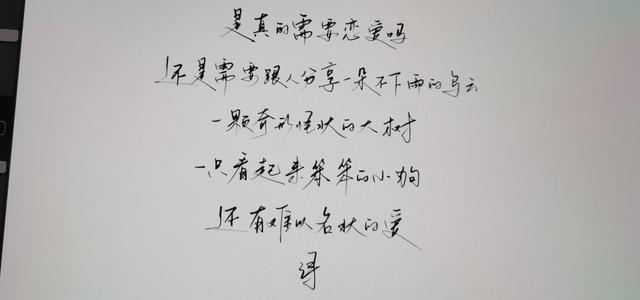 是真的需要恋爱吗
还是需要跟人分享一朵不下雨的乌云
一颗奇形怪状的大树
一只看起来笨笨的小狗
还有难以名状的爱